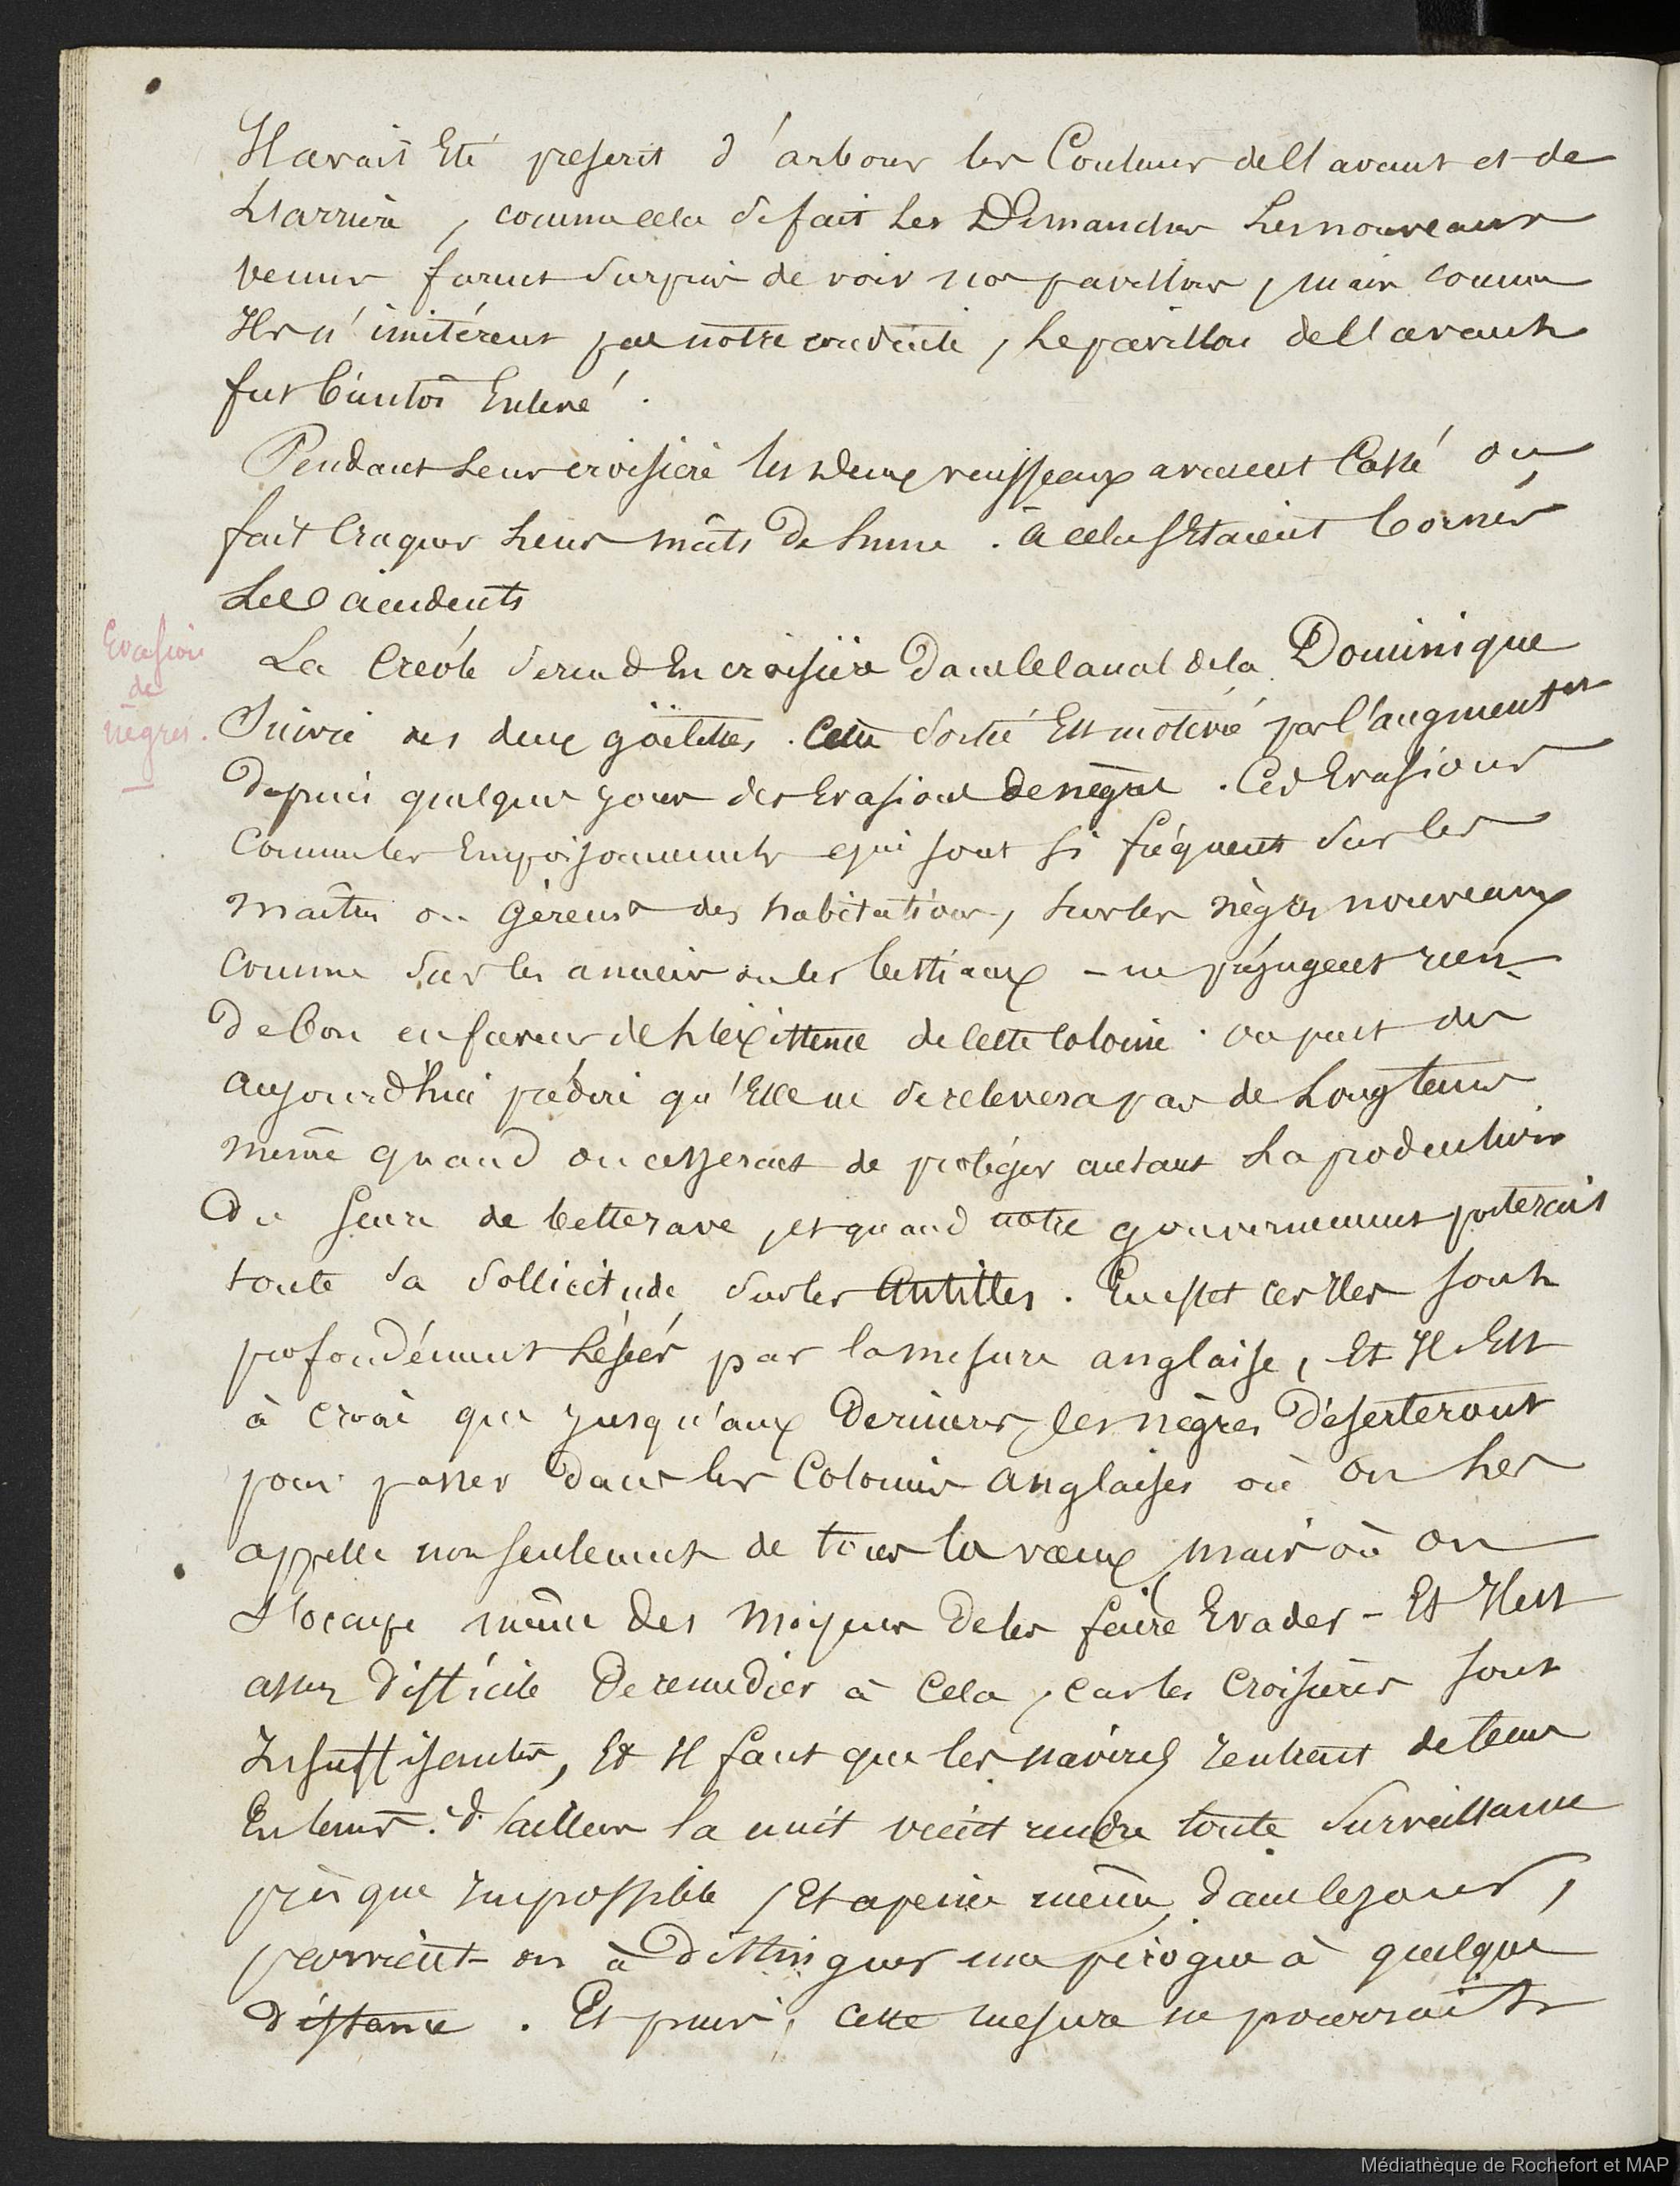 Il avait Eté prescrit d'arborer les Couleurs de l'avant et de
L'arrière, comme cela se fait Les Dimanches Les nouveaux
venus furent Surpris de voir nos pavillons, mais comme
Ils n'imitérent pas notre conduite, Le pavillon de l'avant
fut bientôt Enlevé.
Pendant Leur croisière les deux vaisseaux avaient Cassé ou
fait Craquer Leurs mâts De hune. à cela S'Etaient bornés
Les accidents
Evasion
de
nègres.
La Créole Se rend En croisière Dans le Canal de la Dominique
Suivie des deux göelettes. Cette Sortie Est motivée par l'augment.on
Depuis quelques jours des Evasions de nègres. Ces Evasions
Comme les Empoisonnements qui sont si fréquents Sur les
maîtres ou Gérents des habitations, Sur les nègres nouveaux
Comme Sur les anciens ou les bestiaux - ne préjugent rien
De bon en faveur de L'existence de cette Colonie. on peut dès
aujourd'hui prédire qu'Elle ne Se relevera pas de Longtems
même quand on cesserait de protéger autant La production
Du Sucre de betterave, et quand notre gouvernement porterait
toute Sa Sollicitude Sur les Antilles. En effet ces Iles Sont
profondément Lésées par la mesure anglaise, Et Il Est
à croire que jusqu'aux Derniers, les nègres Déserteront
pour passer Dans les Colonies anglaises où on Les
appelle non seulement de tous les vœux, mais où on
S'occupe même Des moyens De les faire Evader - Et Il est
assez Difficile De remedier à Cela, car les Croisières sont
Insuffisantes, Et Il faut que les navires rentrent de tems
En tems. d'ailleurs la nuit vient rendre toute Surveillance
près que Impossible, Et a peine même, Dans le jour,
parvient-on à Distinguer une pirogue à quelque
Distance. Et puis, cette mesure ne pourrait
Médiathèque de Rochefort et MAP